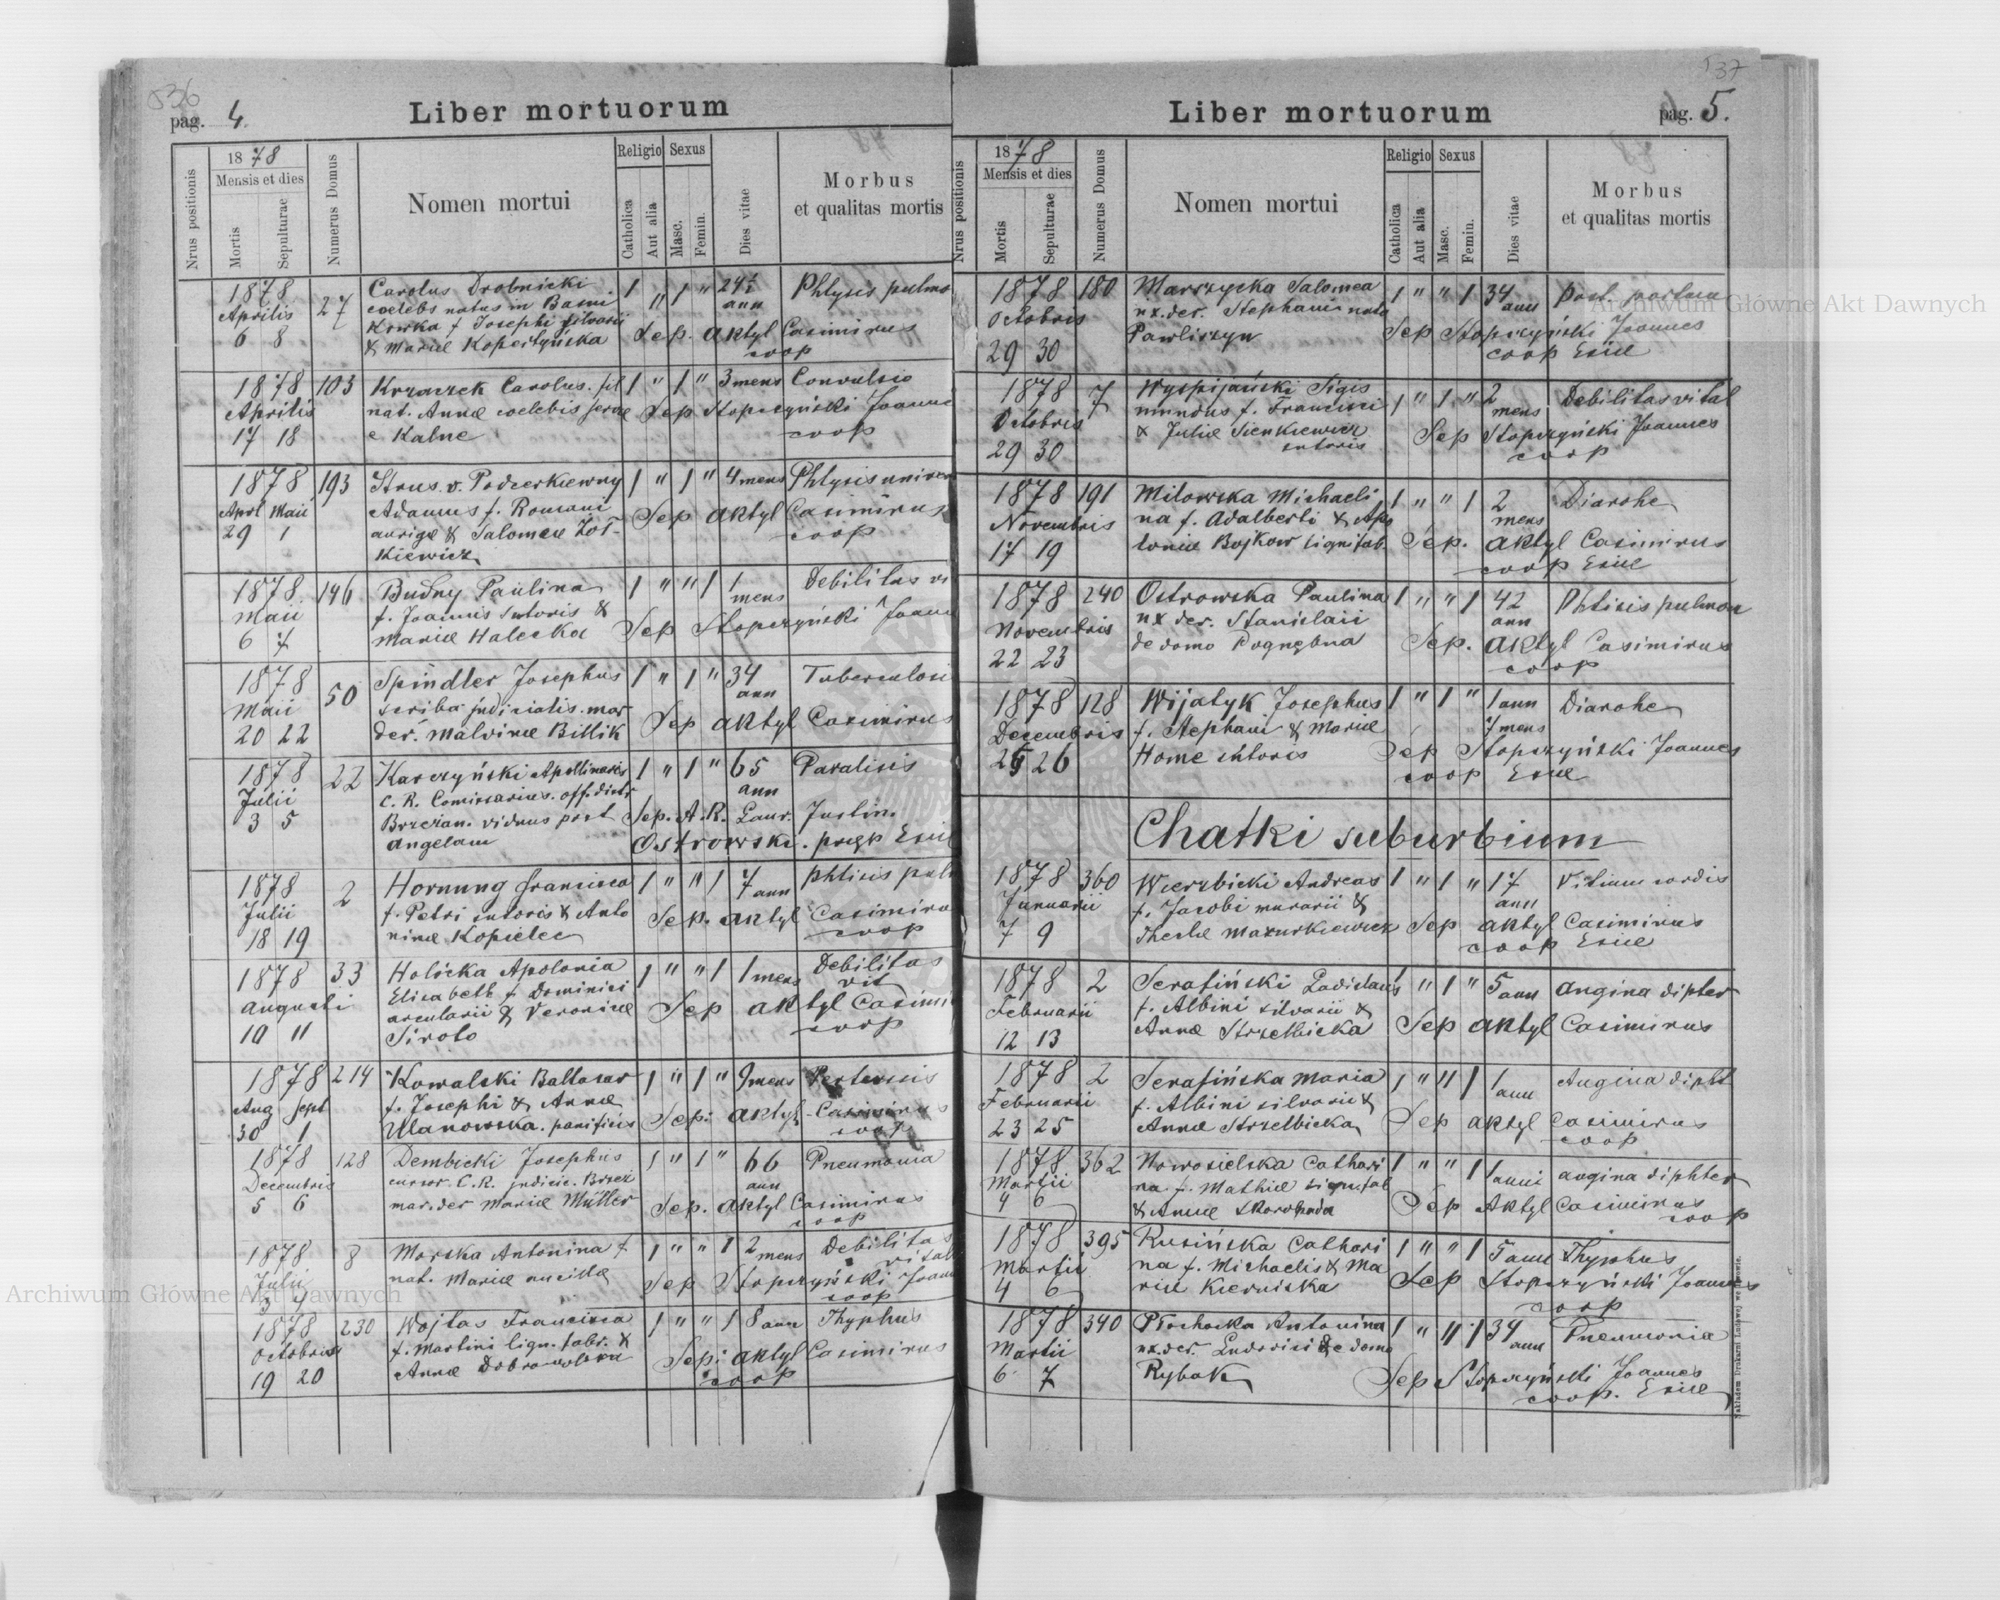 536
pag. 4.
Liber mortuorum
Nrus positionis
1878
Mensis et dies
Mortis
Sepulturae
Numerus Domus
Nomen mortui
Religio
Catholica
Aut alia
Sexus
Masc.
Femin.
Dies vitae
Morbus
et qualitas mortis
1878 27 Carolus Drobnicki 1 " 1 " 24½ Phtysis pulmo
Aprilis coelebs natus in ann
6 8 f Josephi silvarii Sep. Aktyl Casimirus
& Mariae coop
1878 103 Krzaczek Carolus. fil 1 " 1 " 3 mens Convulsio
Aprilis nat. Annae coelebis Sep Stopczyński Joanne
17 18 e Kalne coop
1878 193 Strus v. Podcerkiewny 1 " 1 " 4 mens Phtysis univer
Aprl Maii Adamus f. Romani Sep Aktyl Casimirus
29 1 aurigae & Salomeae Zoł- coop
kiewicz
1878 146 Budny Paulina 1 " " 1 1 mens Debilitas vi
Maii f. Joannis sutoris &
6 7 Mariae Halecka Sep Stopczyński Joann
1878 50 Spindler Josephus 1 " 1 " 34 ann Tuberculosi
Maii scriba judicialis. mar
20 22 der. Malvinae Bittik Sep Aktyl Casimirus
1878 22 Karczyński Apollinaris 1 " 1 " 65 ann Paralisis
Julii C. R. Comissarius. off. distr
3 5 Brzezan. viduus post Sep. A. R. Laur. Justin.
Angelam Ostrowski. praep Exiae
1878 2 Hornung Francisca 1 " " 1 7 ann phtisis pulm
Julii f. Petri sutoris & Anto Sep. Aktyl Casimirus
18 19 ninae Kopielec coop
1878 33 Holicka Apolonia 1 " " 1 1 mens Debilitas vit
Augusti Elisabeth f Dominici
10 11 arcularii & Veronicae Sep Aktyl Casimi
Siroto coop
1878 214 Kowalski Baltasar 1 " 1 " 9 mens Pertussis
Aug Sept f. Josephi & Annae Sep: Aktyl Casimirus
30 1 Ulanowska. panificis coop
1878 128 Dembicki Josephus 1 " 1 " 66 ann Pneumonia
Decembris cursor C. R. judicii. Brzez
5 6 mar. der Mariae Müller Sep. Aktyl Casimirus
coop
1878 8 Morska Antonina f. 1 " " 1 2 mens Debilitas vital
Julii nat. Mariae ancillae Sep Stopczyński Joann
3 4 coop
1878 230 Wojtas Francisca 1 " " 1 8 ann Thyphus
Octobris f. Martini lign. fabr. & Sep: Aktyl Casimirus
19 20 Annae Dobrowolska coop
537
pag. 5.
Liber mortuorum
Nrus positionis
1878
Mensis et dies
Mortis
Sepulturae
Numerus Domus
Nomen mortui
Religio
Catholica
Aut alia
Sexus
Masc.
Femin.
Dies vitae
Morbus
et qualitas mortis
1878 180 Marszycka Salomea 1 " " 1 34 ann Post. partum
Octobris ux. der. Stephani nata Sep Stopczyński Joannes
29 30 Pawliszyn coop Exiae
1878 7 Wyspijański Sigis 1 " 1 " 2 mens Debilitas vital
Octobris mundus f. Francisci
29 30 & Juliae Sienkiewicz Sep Stopczyński Joannes
sutoris coop
1878 191 Milowska Michaeli 1 " " 1 2 mens Diarohe
Novembris na f. Adalberti & Apo
17 19 loniae Bojkow lignifab. Sep. Aktyl Casimirus
coop Exiae
1878 240 Ostrowska Paulina 1 " " 1 42 ann Phtisis pulmon
Novembris ux der. Stanislaii
22 23 de domo Pognębna Sep. Aktyl Casimirus
coop
1878 128 Wijatyk Josephus 1 " 1 " 1 ann 7 mens Diarohe
Decembris f. Stephani & Mariae
25 26 Home sutoris Sep Stopczyński Joannes
coop Exiae
Chatki suburbium
1878 360 Wierzbicki Andreas 1 " 1 " 17 ann Vitium cordis
Januarii f. Jacobi murarii &
7 9 Theclae Mazurkiewicz Sep Aktyl Casimirus
coop Exiae
1878 2 Serafiński Ladislaus 1 " 1 " 5 ann Angina dipter
Februarii f. Albini silvarii &
12 13 Annae Strzelbicka Sep Aktyl Casimirus
1878 2 Serafińska Maria 1 " " 1 1 ann Angina dipht
Februarii f. Albini silvarii &
23 25 Annae Strzelbicka Sep Aktyl Casimirus
coop
1878 362 Nowosielska Cathari 1 " " 1 1 anni angina diphter
Martii na f. Mathiae lignifab
4 6 & Annae Skorohoda Sep Aktyl Casimirus
coop
1878 395 Rusińska Cathari 1 " " 1 5 ann Thyphus
Martii na f. Michaelis & Ma Sep Stopczyński Joannes
4 6 riae Kierniska coop
1878 340 Płochocka Antonina 1 " " 1 34 ann Pneumonia
Martii ux. der. Ludovici de domo
6 7 Rybak Sep Stopczyński Joannes
coop. Exiae
Nakładem Drukarni Ludowej we Lwowie.
Archiwum Główne Akt Dawnych
Archiwum Główne Akt Dawnych